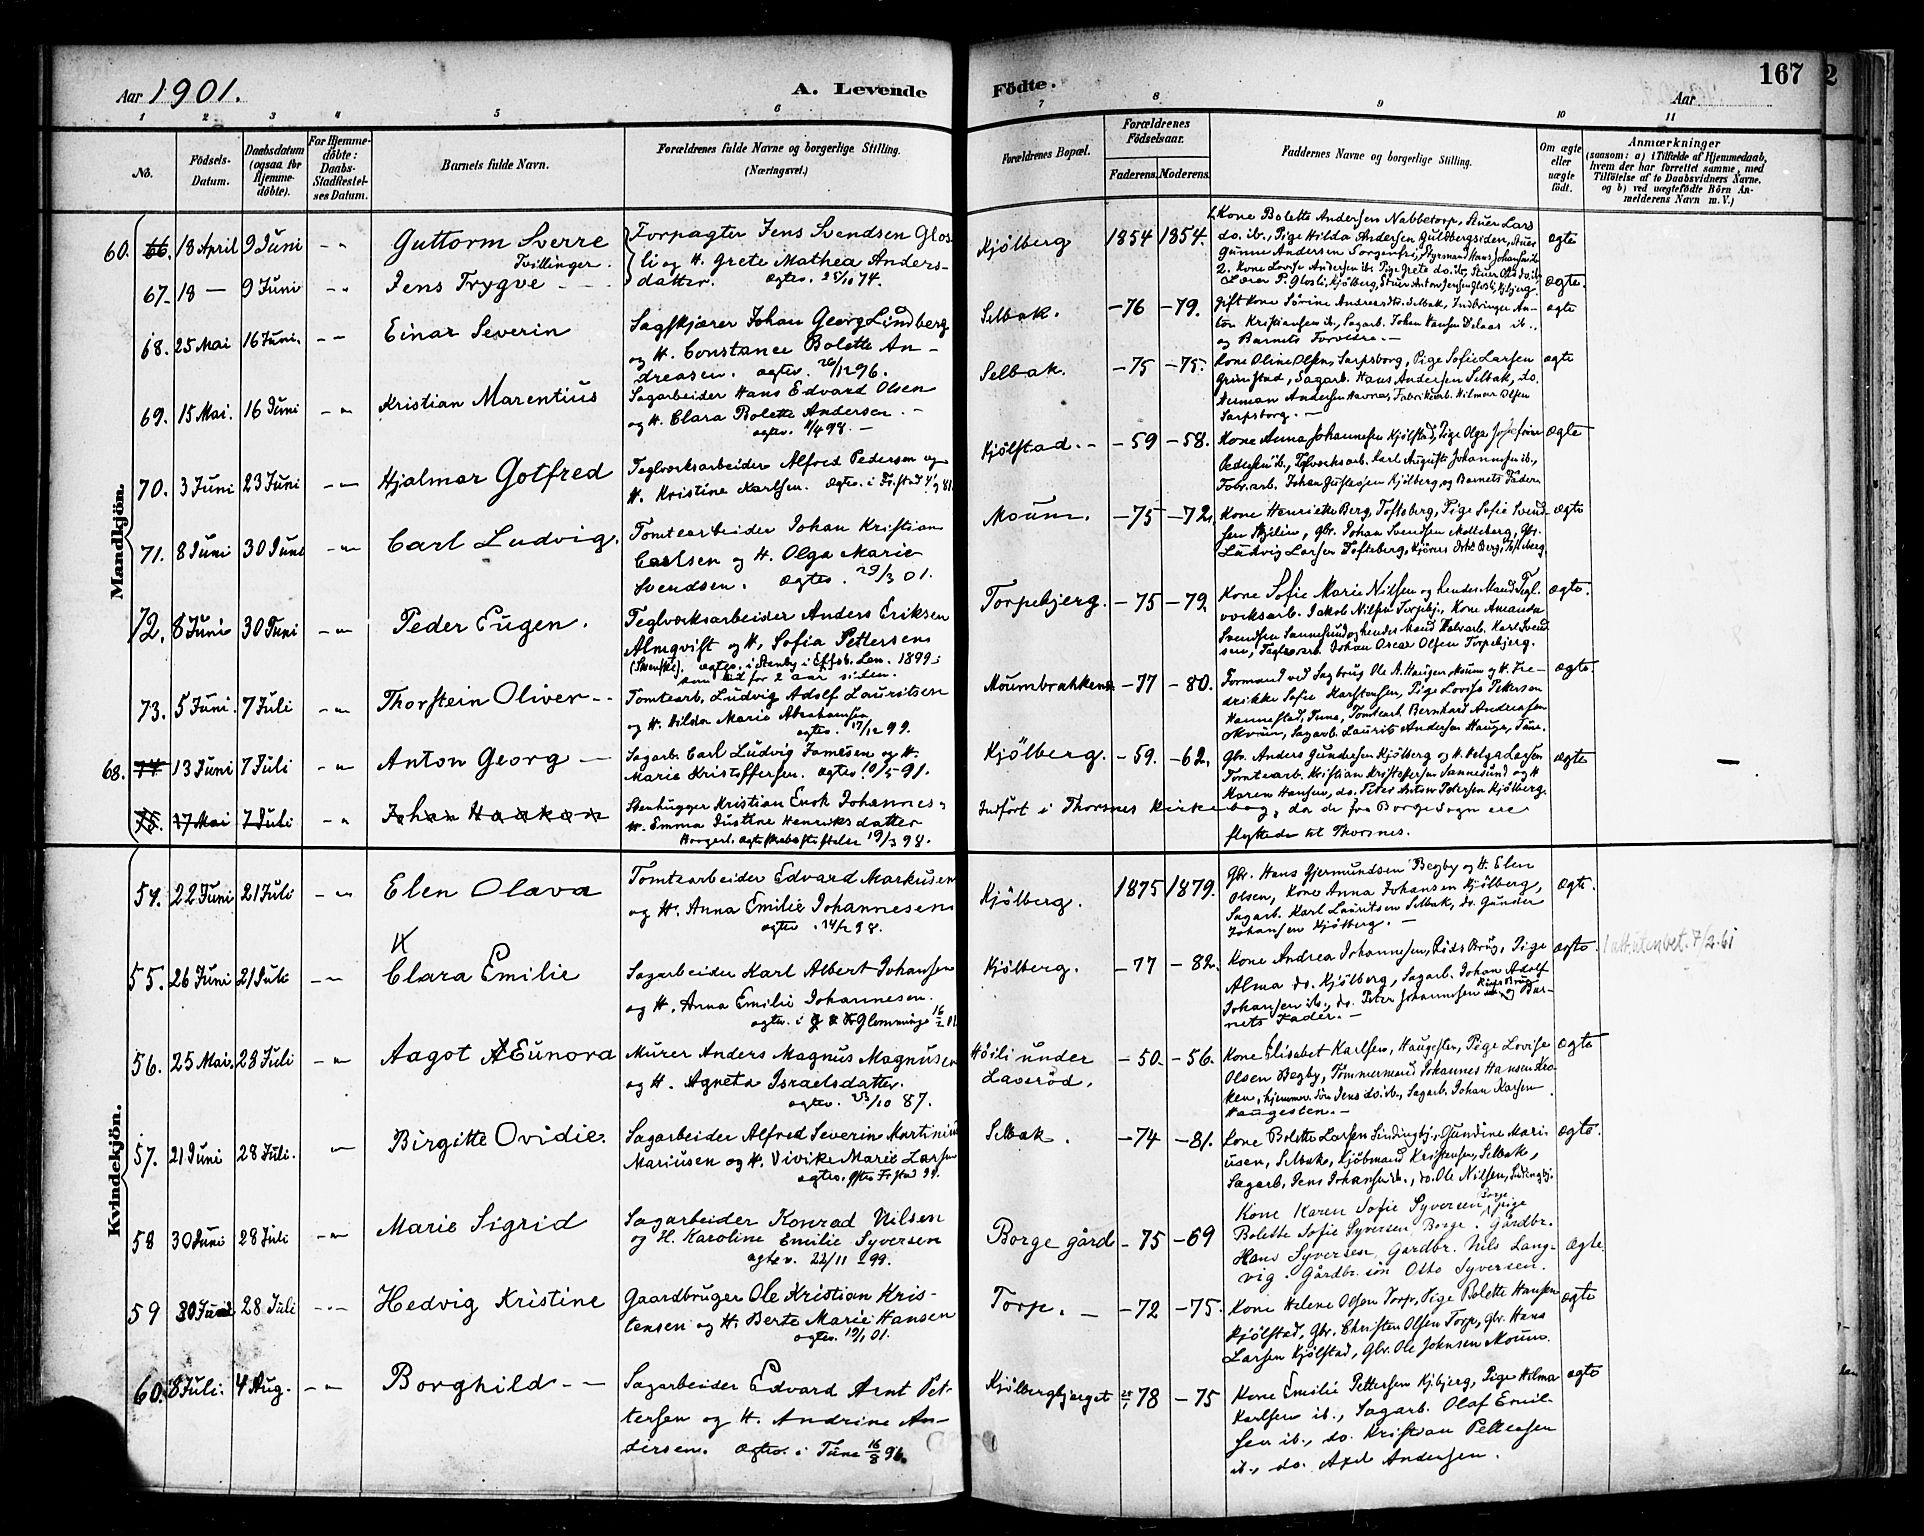 Aar 1901.
A. Levende
Födte.
Aar
167
2
1 2 3 4 5 6 7 8 9 10 11
No.
Födsels-Datum.
Daabsdatum (ogsaa for Hjemme-döbte).
For Hjemme-döbte: Daabs-Stadfæstel-ses Datum.
Barnets fulde Navn.
Forældrenes fulde Navne og borgerlige Stilling.
(Næringsvei.)
Forældrenes Bopæl.
Forældrenes Födselsaar.
Faderens. Moderens.
Faddernes Navne og borgerlige Stilling.
Om ægte eller uægte födt.
Anmærkninger
(saasom: a) i Tilfælde af Hjemmedaab,
hvem der har forrettet samme, med
Tilföielse af to Daabsvidners Navne,
og b) ved uægtefödte Börn An-
melderens Navn m. V.)
Mandkjön.
60. 66. 18 April 9 Juni Guttorm Sverre
Tvillinger.
Forpagter Jens Svendsen Glos-
li og H. Grete Mathea Anders-
datter. ægtev. 25/10 74.
Kjölberg 1854 1854.
1. Kone Bolette Andersen Nabbetorp, Stuer Lars
do. ib., Pige Hilda Andersen Guldbergsiden, Stuer
Gunne Andersen Sorgenfri, Styrmand Hans Johansen ib
ægte
67. 18 — 9 Juni Jens Trygve
2. Kone Lovise Andersen ib. Pige Grete do. ib., Stuer Ole do. ib.
Lærer P. Glosli, Kjölberg, Stuer Anton Jensen Glosli, Kjbjerg.
ægte.
68. 25 Mai 16 Juni. Einar Severin
Sagskjærer Johan Georg Lindberg
og H. Constance Bolette An-
dreasen. ægtev. 26/12 96.
Selbak. -76 -79.
Gift Kone Sörine Andreasdtr. Selbak, Indbringer An-
ton Kristiansen ib., Sagarb. Johan Hansen ib.,
og Barnets Forældre.
ægte
69. 15 Mai. 16 Juni Kristian Marentius
Sagarbeider Hans Edvard Olsen
og H. Clara Bolette Andersen.
ægtev. 11/4 98.
Selbak. -75 -75.
Kone Oline Olsen, Sarpsborg, Pige Sofie Larsen
Grimstad, Sagarb. Hans Andersen Selbak, do.
Herman Andersen Havnås, Fabrikarb. Hilmar Olsen
Sarpsborg.
ægte
70. 3 Juni 23 Juni Hjalmar Gotfred
Teglværksarbeider Alfred Pedersen og
H. Kristine Karlsen. ægtev. i Fr.stad 81.
Kjölstad. -59 -58.
Kone Anna Johannesen Kjölstad, Pige Olga Josefine
Pedersen ib., Teglværksarb. Karl August Johannesen ib.,
Fabr.arb. Johan Gustafsen Kjölberg, og Barnets Fader
ægte
71. 8 Juni 30 Juni Carl Ludvig.
Tomtearbeider Johan Kristian
Carlsen og H. Olga Marie
Svendsen. ægtev. 29/3 01.
Moum. -75 -72.
Kone Henriette Berg, Tofteberg, Pige Sofie Svend-
sen, Gbr. Johan Svendsen, Gbr.
Ludvig Larsen Tofteberg, Berg, Tofteberg.
ægte
72. 8 Juni 30 Juni Peder Eugen.
Teglværksarbeider Anders Eriksen
Almqvist og H. Sofia Pettersen
(Svenske). ægtev. i i Elfsb. Len. 1899;
kom hid for 2 Aar siden.
Torpebjerg. -75 -79
Kone Sofie Marie Nilsen og hendes Mand Tegl-
værksarb. Jakob Nilsen Torpebj., Kone Amanda
Svendsen Sannesund og hendes Mand Karl Svend-
sen, Teglværb. Johan Oscar Olsen Torpebjerg.
ægte.
73. 5 Juni. 7 Juli Thorstein Oliver
Tomtearb. Ludvig Adolf Lauritsen
og H. Hilda Marie Abrahamsen
ægtev. 17/12 99.
Moumbrakkene -77 -80.
Formand ved Sagbrug Ole A. Haugen, Moum og H. Fre-
drikke Sofie Karstensen, Pige Lovise Petersen
Hannestad, Tune, Tomtearb. Bernhard Andreasen
Moum, Sagarb. Laurits Andersen Hauge, Tune.
ægte
68. 74 13 Juni 7 Juli Anton Georg
Sagarb. Carl Ludvig Jamesen og H.
Marie Kristoffersen. ægtev. 10/5 91.
Kjölberg. -59. -62.
Gbr. Anders Gundersen Kjölberg og H. Helga Larsen
Tomtearb. Kristian Kristoffersen Sannesund og H
Maren Hansen, do. Peter Anton Pedersen Kjölberg.
ægte
75. 17 Mai 7 Juli Johan Haakon
Stenhugger Kristian Enok Johannes-
H. Emma Justine Henriksdatter
Borgerl. ægteskab stiftelse 19/3 98.
Indfört i Thorsnes Kirkebog, da de fra Borge Sogn ere
flyttede til Thorsnes.
Kvindekjön.
54. 22 Juni 21 Juli Elen Olava
Tomtearbeider Edvard Markusen
og H. Anna Emilie Johannesen
ægtev. 14/2 98.
Kjölberg. 1875 1879.
Gbr. Hans Gjermundsen Begby og H. Elen
Olsen, Kone Anna Johansen Kjölberg,
Sagarb. Karl Lauritsen Selbak, do. Gunder
Johansen Kjölberg.
ægte.
55. 26 Juni 21 Juli Clara Emilie
Sagarbeider Karl Albert Johansen
og H. Anna Emilie Johannesen.
ægtev. i Glemminge 16/2 01
Kjölberg. -77 -82.
Kone Andrea Johannesen, Rids Brug, Pige
Alma do. Kjölberg, Sagarb. Johan Adolf
Johansen ib., do. Peter Johannesen Rids Brug og Bar-
nets Fader.
ægte
1 att. utenbet. 7/2-61
56. 25 Mai. 28 Juli Aagot Eunora
Murer Anders Magnus Magnusen
og H. Agneta Israelsdatter.
ægtev. 23/10 87.
Höili under
Laveröd. -50. -56.
Kone Elisabet Karlsen, Haugesten, Pige Lovise
Olsen Begby, Tömmermand Johannes Hansen
hjemmev. Sön Jens do. ib., Sagarb. Johan Karlsen
Haugesten.
ægte
57. 21 Juni 28 Juli. Birgitte Ovidie.
Sagarbeider Alfred Severin Martinius
Mariusen og H. Vivike Marie Larsen
ægtev. Fr.stad 99.
Selbak. -74 -81.
Kone Bolette Larsen Lindingbj., Gundine Mari-
usen, Selbak, Kjöbmand Kristensen, Selbak,
Sagarb. Jens Johansen ib., do. Ole Nilsen, Lindingbj.
ægte.
58 30 Juni 28 Juli Marie Sigrid
Sagarbeider Konrad Nilsen
og H. Karoline Emilie Syversen
ægtev. 22/11 99.
Borge gård -75 -69
Kone Karen Sofie Syversen Borge, pige
Bolette Sofie Syversen Borge. Gårdbr.
Hans Syversen, Gårdbr. Nils Lang-
vig. Gårdbr. sön Otto Syversen.
Ægte
59 30 Juni 28 Juli Hedvig Kristine
Gaardbruger Ole Kristian Kris-
tensen og H. Berte Marie Hansen
ægtev. 19/1 01.
Torp. -72 -75.
Kone Helene Olsen Torp, Pige Bolette Hansen
Kjölstad, Gbr. Christen Olsen Torp, Gbr. Hans
Larsen Kjölstad, Gbr. Ole Johnsen Moum.
ægte
60. 8 Juli. 4 Aug. Borghild
Sagarbeider Edvard Arnt Pet-
tersen og H. Andrine An-
dersen. ægtev. i Tune 16/8 96.
Kjölbergbjerget -78 -75
Kone Emilie Pettersen Kjbjerg, Pige Hilma
Karlsen ib., Sagarb. Olaf Emil-
sen ib., do. Kristian Pettersen
ib., do. Axel Andersen.
ægte